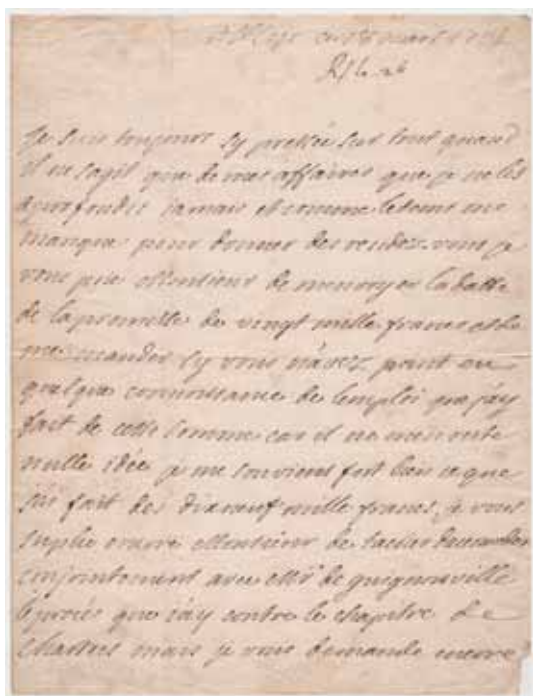 je suis toujours sy pressée sur tout quand
il ne sagit que de mes affaires que je ne les
aprofondis jamais et comme le tems me
manque pour donner des rendez-vous je
vous prie Monsieur de menvoyer la datte
de la promesse de vingt mille francs et de
me mander sy vous n'avez point eu
quelque connoissance de lemploi que j'ay
fait de cette somme car il ne men reste
nulle idée je me souviens fort bien ce que
j'ai fait des dixneuf mille francs, je vous
suplie encore Monsieur de tacher
conjointement avec Mr de guignonville
le procés que j'ay contre le chapitre de
Chartres mais je vous demande encore